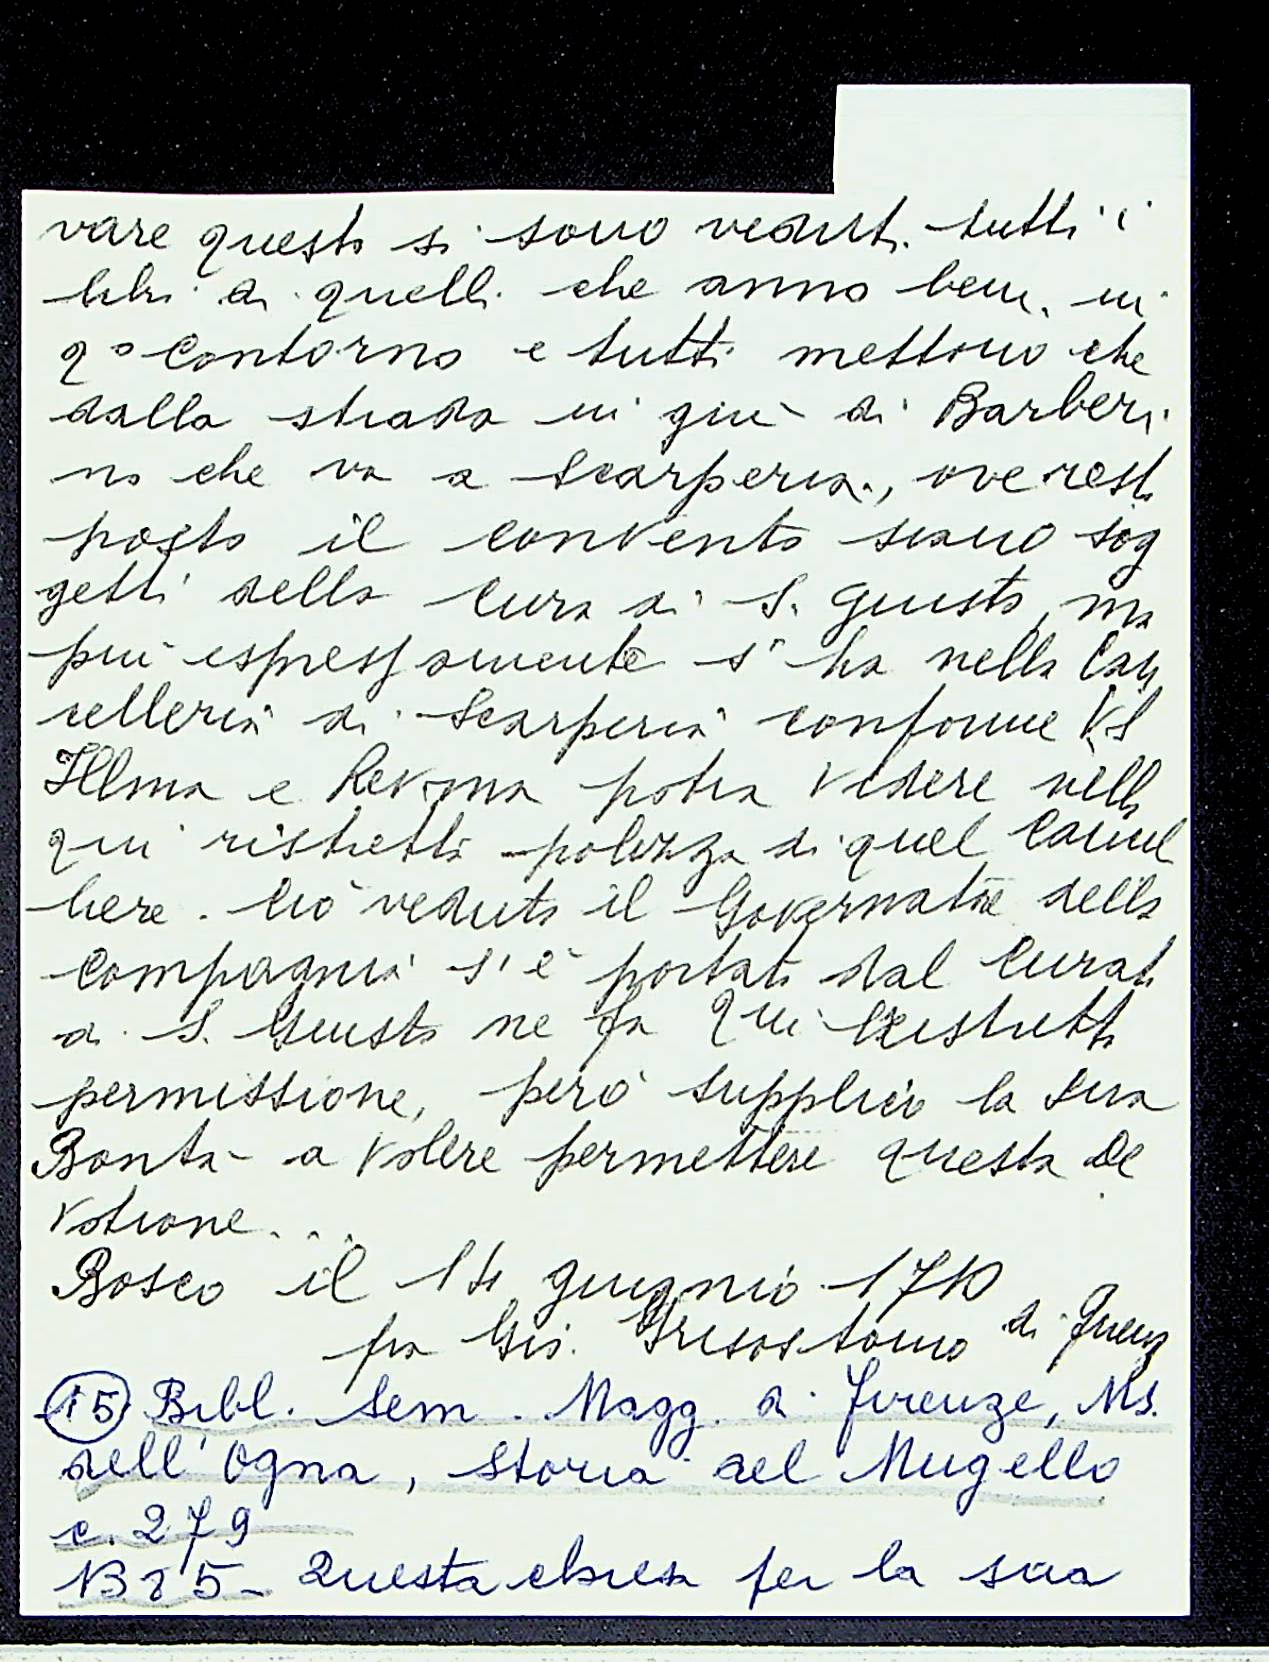 vare questo si sono veduti tutti i
libri di quelli che anno beni in
q° contorno e tutti mettono che
dalla strada in giù di Barberi
no che va a Scarperia, ove resta
posto il convento siano sog
getti della Cura di S. Giusto, ma
più espressamente s'ha nella Can
celleria di Scarperia conforme VS
Illma e Revma potrà vedere nella
qui ristretta polizza di quel Cancel
liere. Ciò veduto il Governatore della
Compagnia s'è portato dal Curato
di S. Giusto ne fa qui
permissione, però supplico la sua
Bontà a volere permettere questa de
votione...
Bosco il 14 giugno 1710
fra Gio. Grisostomo di Firenz
(15) Bibl. Sem. Magg. di Firenze, Ms.
dell'Ogna, Storia del Mugello
c. 279
Questa chiesa per la sua